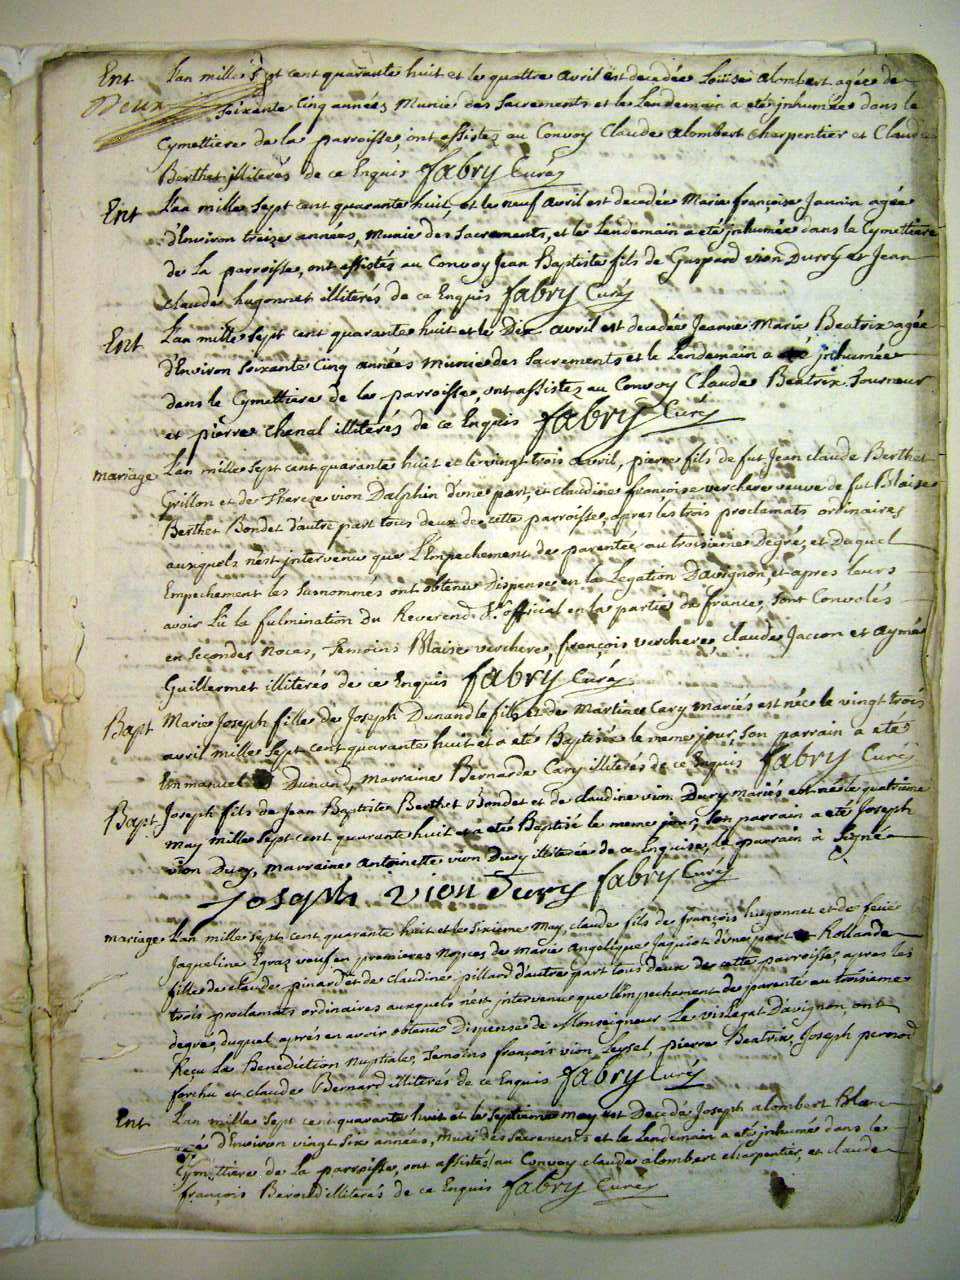 Ent L'an mille sept cent quarante huit et le quattre avril est decedée Loüise alombert agée de
Deux soixante Cinq années, Munie des Sacrements et le Lendemain a eté jnhumée dans le
Cymettiere de la parroisse, ont assistez au Convoy Claude alombert charpentier et Claude
Berthet illiterés de ce Enquis fabry Curéz
Ent L'an mille sept cent quarante huit, et le neuf avril est decedée Marie françoise Jannin agée
d'Environ treize années, munie des Sacrements, et le Lendemain a eté jnhumée dans la Cymettiere
de la parroisse, ont assistés au Convoy Jean Baptiste fils de Gaspard vion Durry et Jean
claude hugonnet illiterés de ce Enquis fabry Curéz
Ent L'an mille sept cent quarante huit et le Dix avril est decedée Jeanne Marie Beatrix agée
d'Environ soixante Cinq années munie des Sacrements et le Lendemain a eté jnhumée
dans le Cymettiere de la parroisse, ont assistez au Convoy Claude Beatrix Tourneur
et pierre chenal illiterés de ce Enquis fabry Curéz
mariage L'an mille sept cent quarante huit et le vingt trois avril, pierre fils de fut Jean claude Berthet
Grillon et de Thereze vion Dalphin d'une part, et claudine françoise verchere veuve de fut Blaise
Berthet Bondet d'autre part tous deux de cette parroisse, apres les trois proclamats ordinaires
auxquels n'est jntervenu que l'Empechement de parenté au troisieme degré, et duquel
Empechement les surnommés ont obtenu Dispense en la Legation Davignon, et apres leurs
avoir Lu la fulmination du Reverend Sr official en la partie de france, sont Convolés
en secondes Noces, Temoins Blaise verchere, françois verchere, claude Jaccon et aymé
Guillermet illiterés de ce Enquis fabry Curéz
Bapt Marie Joseph fille de Joseph Dunand le fils et de Martinne Cary mariés est née le vingt trois
avril mille sept cent quarante huit et a eté Baptisée le meme jour, Son parrain a eté
Emmanuel Dunand, marraine Bernarde Cary illiterés de ce Enquis fabry Curéz
Bapt Joseph fils de Jean Baptiste Berthet Bondet et de claudine vion Dury mariés est né le quatrieme
may mille sept cent quarante huit et a eté Baptisé le meme jour, Son parrain a eté Joseph
vion Dury, marraine antoinette vion Dury illiterée de ce Enquise, le parrain à Signé
Joseph vion Dury fabry Curéz
mariage L'an mille sept cent quarante huit et le sixieme may, claude fils de françois hugonnet et de feüe
Jaqueline Egraz veuf en premieres Noçes de marie angelique Jaquiot d'une part Rollande
fille de claude pinard et de claudine pillard d'autre part tous deux de cette parroisse, apres les
trois proclamats ordinaires auxquels n'est jntervenu que l'Empechement de parenté au troisieme
degré, duquel après en avoir obtenu Dispense de Monseigneur Le vislegat D'avignon, ont
Reçu La Benediction Nuptiale, Temoins françois vion Leysel, pierre Beatrix, Joseph perrod
forchu et claude Bernard illiterés de ce Enquis fabry Curéz
Ent L'an mille sept cent quarante huit et le septieme may est Decedé Joseph alombert Blanc
agé d'Environ vingt six années, muni des Sacrements et le Lendemain a eté jnhumé dans le
Cymettiere de La parroisse, ont assistés au Convoy claude alombert charpentier, et claude
françois Beroud illiterés de ce Enquis fabry Curéz